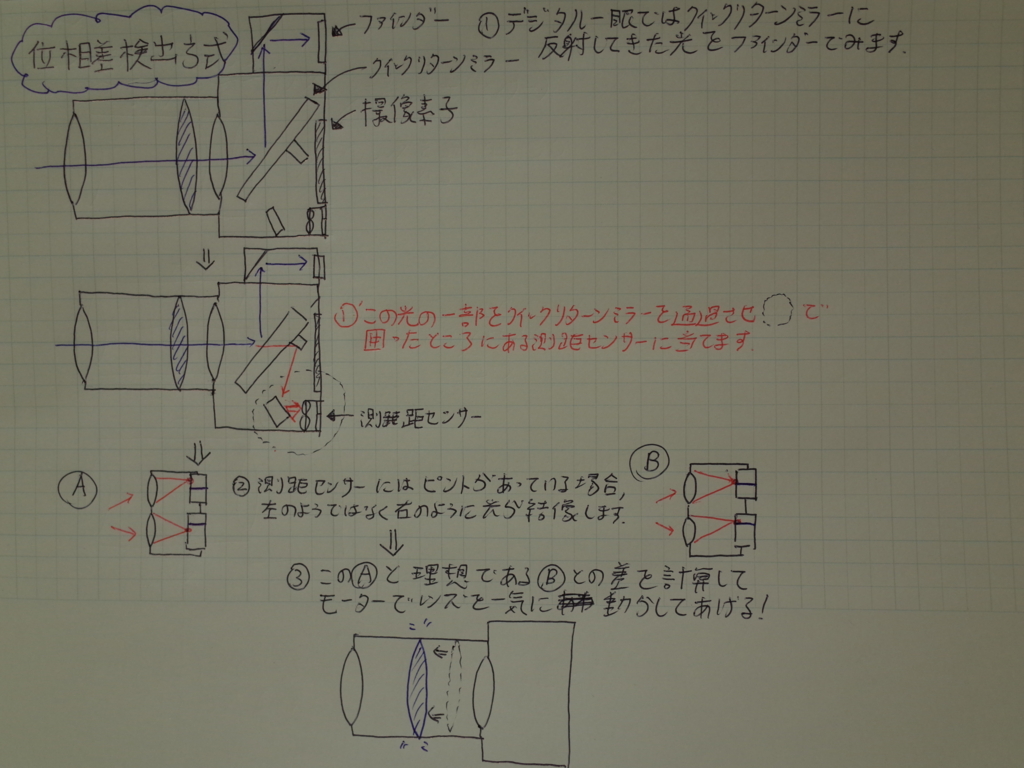 位相差検出方式
ファインダー
クイックリターンミラー
撮像素子
① デジタル一眼ではクイックリターンミラーに
反射してきた光をファインダーでみます.
①' この光の一部をクイックリターンミラーを通過させ で
囲ったところにある測距センサーに当てます.
測距センサー
Ⓐ
② 測距センサーにはピントがあっている場合,
左のようではなく右のように光が結像します.
Ⓑ
③ このⒶと理想であるⒷとの差を計算して
モーターでレンズを一気に動かしてあげる!